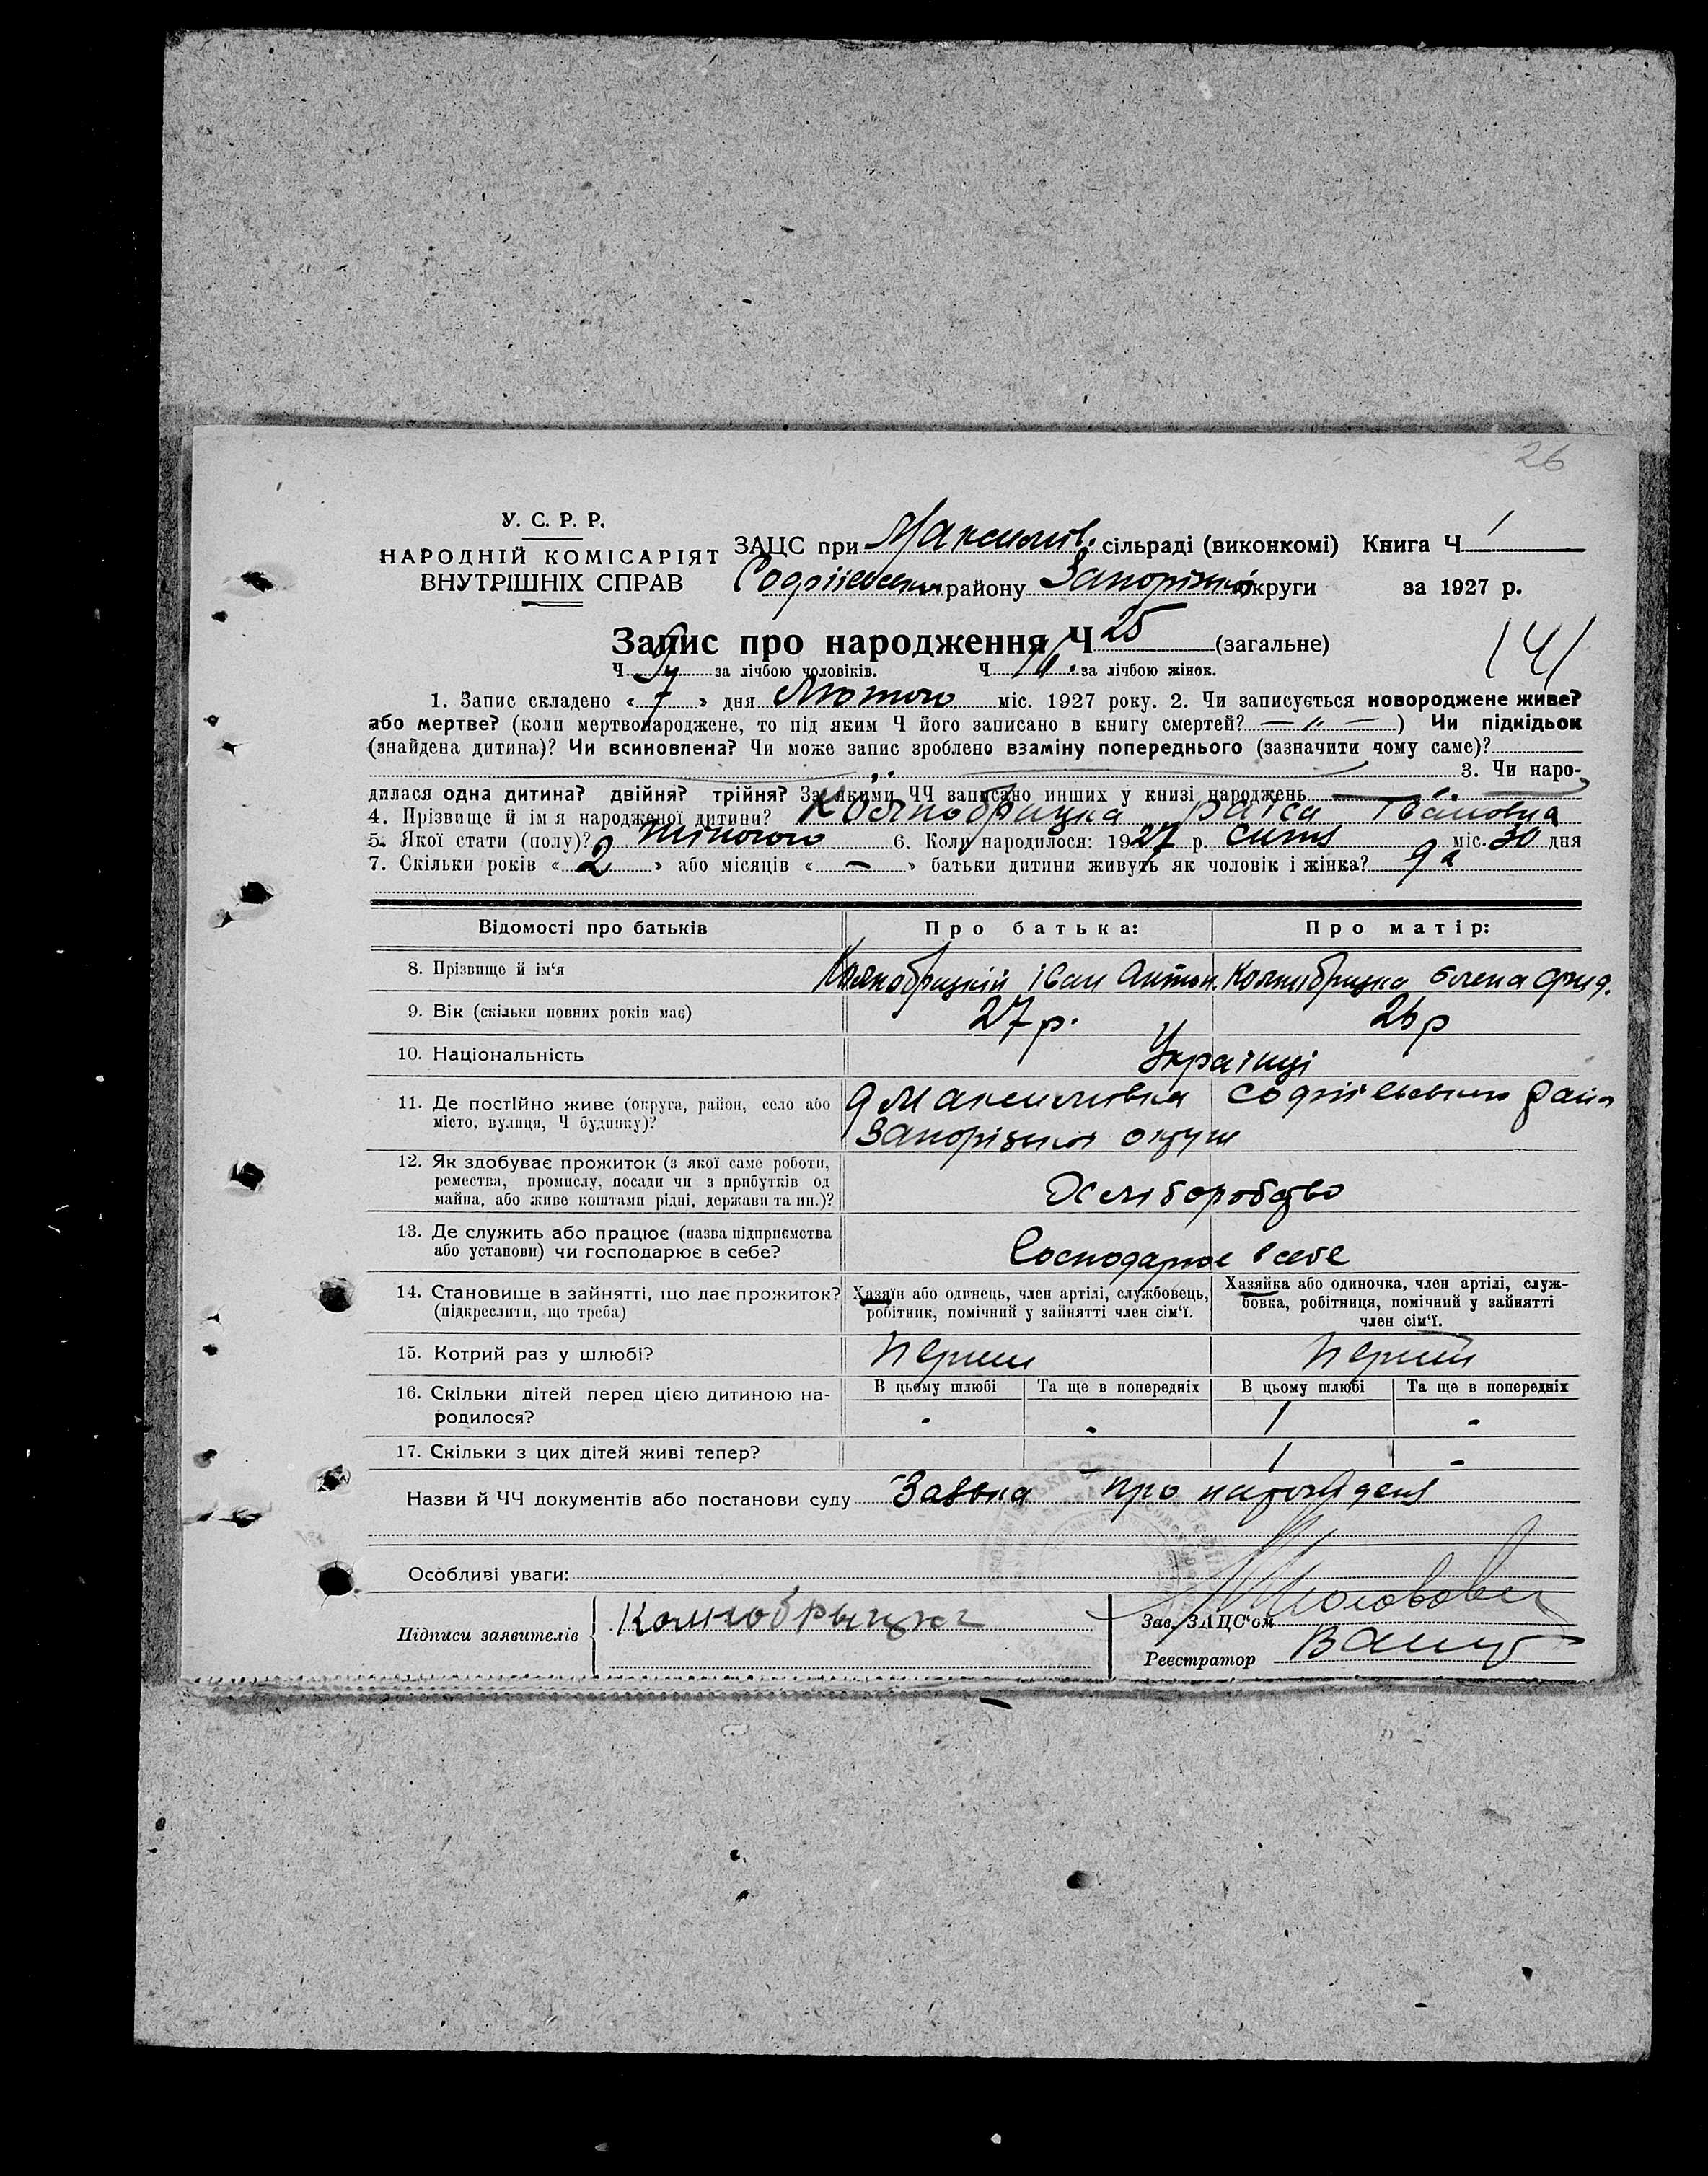 26
У. С. Р. Р.
НАРОДНІЙ КОМІСАРІЯТ
ВНУТРІШНІХ СПРАВ
ЗАЦС при Максимів. сільраді (виконкомі) Книга Ч 1
Софіївськ району Запоріжної округи за 1927 р.
Запис про народження Ч 25 (загальне)
141
Ч за лічбою чоловіків. Ч 11. за лічбою жінок.
1. Запис складено « 7 » дня Лютого міс. 1927 року. 2. Чи записується новороджене живе?
або мертве? (коли мертвонароджене, то під яким Ч його записано в книгу смертей? — „ — ) Чи підкідьок
(знайдена дитина)? Чи всиновлена? Чи може запис зроблено взаміну попереднього (зазначити чому саме)?
3. Чи наро-
дилася одна дитина? двійня? трійня? За якими ЧЧ записано инших у книзі народжень
4. Прізвище й ім'я народженої дитини? раіса івановна
5. Якої стати (полу)? жіночого 6. Коли народилося: 1927 р. січня міс. 30 дня
7. Скільки років « 2 » або місяців « — » батьки дитини живуть як чоловік і жінка? да
Відомості про батьків Про батька: Про матір:
8. Прізвище й ім'я іван Антон. Єлена
9. Вік (скільки повних років має) 27 р. 26 р
10. Національність Українці
11. Де постійно живе (округа, район, село або
місто, вулиця, Ч будинку)?
д Максимовка Софіївського район
Запорізької округи
12. Як здобуває прожиток (з якої саме роботи,
ремества, промислу, посади чи з прибутків од
майна, або живе коштами рідні, держави та ин.)?
Хліборобство
13. Де служить або працює (назва підприємства
або установи) чи господарює в себе?
Господарює в себе
14. Становище в зайнятті, що дає прожиток?
(підкреслити, що треба)
Хазяїн або одинець, член артілі, службовець,
робітник, помічний у зайнятті член сім'ї.
Хазяйка або одиночка, член артілі, служ-
бовка, робітниця, помічний у зайнятті
член сім'ї.
15. Котрий раз у шлюбі? перший перший
16. Скільки дітей перед цією дитиною на-
родилося?
В цьому шлюбі Та ще в попередніх В цьому шлюбі Та ще в попередніх
- - 1 -
17. Скільки з цих дітей живі тепер? - 1 -
Назви й ЧЧ документів або постанови суду Заявка про народжень
Особливі уваги:
Підписи заявителів
Зав. ЗАЦС'ом
Реєстратор